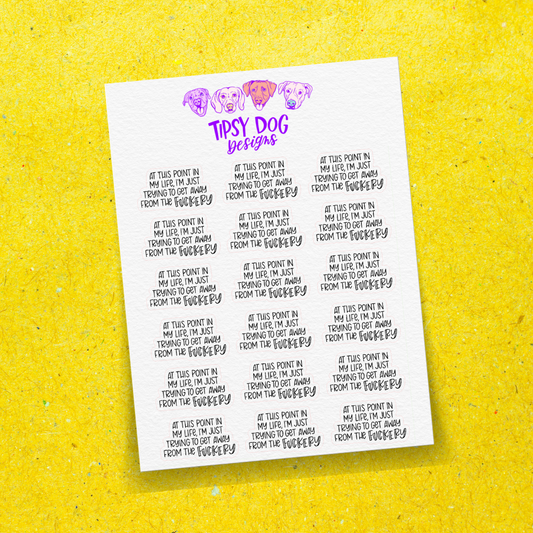 TIPSY DOG
Designs
AT THIS POINT IN
MY LIFE, I'M JUST
TRYING TO GET AWAY
FROM THE FUCKERY
AT THIS POINT IN
MY LIFE, I'M JUST
TRYING TO GET AWAY
FROM THE FUCKERY
AT THIS POINT IN
MY LIFE, I'M JUST
TRYING TO GET AWAY
FROM THE FUCKERY
AT THIS POINT IN
MY LIFE, I'M JUST
TRYING TO GET AWAY
FROM THE FUCKERY
AT THIS POINT IN
MY LIFE, I'M JUST
TRYING TO GET AWAY
FROM THE FUCKERY
AT THIS POINT IN
MY LIFE, I'M JUST
TRYING TO GET AWAY
FROM THE FUCKERY
AT THIS POINT IN
MY LIFE, I'M JUST
TRYING TO GET AWAY
FROM THE FUCKERY
AT THIS POINT IN
MY LIFE, I'M JUST
TRYING TO GET AWAY
FROM THE FUCKERY
AT THIS POINT IN
MY LIFE, I'M JUST
TRYING TO GET AWAY
FROM THE FUCKERY
AT THIS POINT IN
MY LIFE, I'M JUST
TRYING TO GET AWAY
FROM THE FUCKERY
AT THIS POINT IN
MY LIFE, I'M JUST
TRYING TO GET AWAY
FROM THE FUCKERY
AT THIS POINT IN
MY LIFE, I'M JUST
TRYING TO GET AWAY
FROM THE FUCKERY
AT THIS POINT IN
MY LIFE, I'M JUST
TRYING TO GET AWAY
FROM THE FUCKERY
AT THIS POINT IN
MY LIFE, I'M JUST
TRYING TO GET AWAY
FROM THE FUCKERY
AT THIS POINT IN
MY LIFE, I'M JUST
TRYING TO GET AWAY
FROM THE FUCKERY
AT THIS POINT IN
MY LIFE, I'M JUST
TRYING TO GET AWAY
FROM THE FUCKERY
AT THIS POINT IN
MY LIFE, I'M JUST
TRYING TO GET AWAY
FROM THE FUCKERY
AT THIS POINT IN
MY LIFE, I'M JUST
TRYING TO GET AWAY
FROM THE FUCKERY